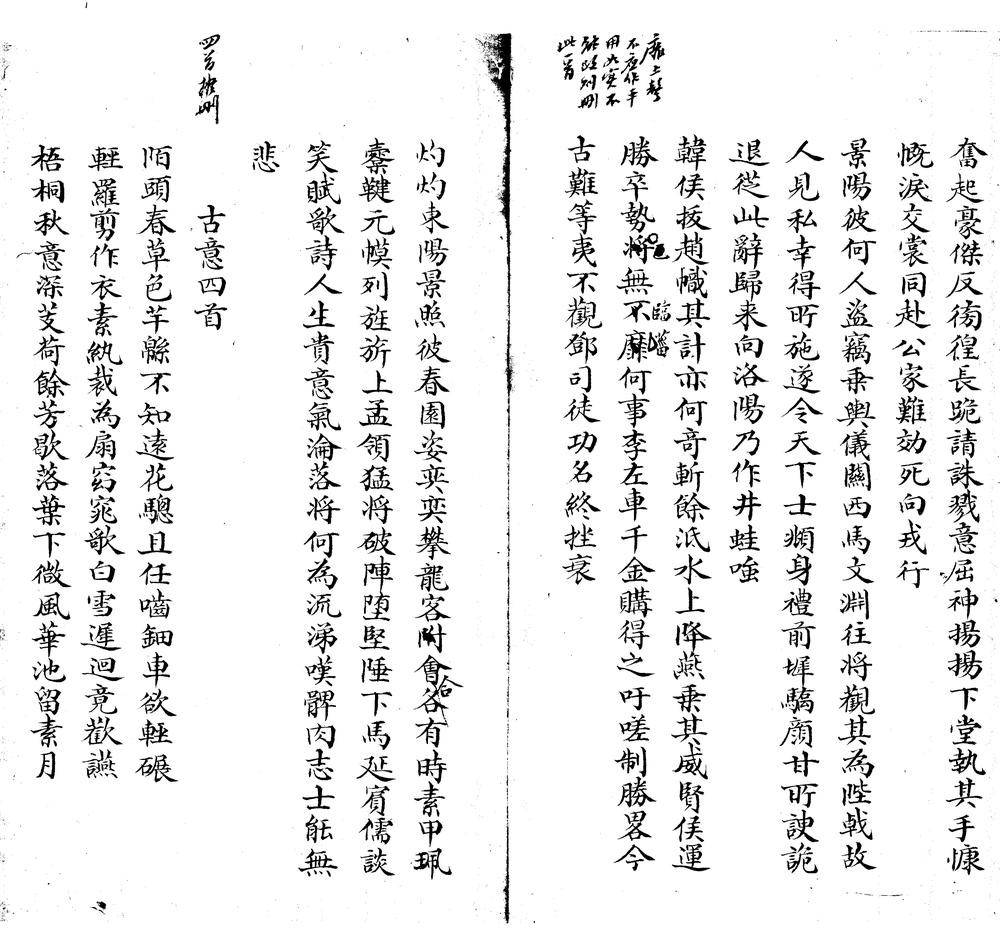 靡上聲
不應作平
用如實不
能改則刪
此一首
奮起豪傑反徬徨長跪請誅戮意屈神揚揚下堂執其手慷
慨淚交裳同赴公家難効死向戎行
景陽彼何人盜竊乘輿儀關西馬文淵往將觀其為陛戟故
人見私幸得所施遂令天下士頫身禮前墀驕顏甘所諛詭
退從此辭歸来向洛陽乃作井蛙嗤
韓侯拔趙幟其計亦何奇斬餘泜水上降燕乘其威賢侯運
勝卒勢將無不靡何事李左車千金購得之吁嗟制勝畧今
臨菑
古難等夷不觀鄧司徒功名終挫衰
灼灼東陽景照彼春園姿奕奕攀龍客附會各有時素甲珮
合
櫜鞬元幙列旌旂上孟領猛將破陣墮堅陲下馬延賓儒談
笑賦歌詩人生貴意氣淪落將何為流涕嘆髀肉志士能無
悲
四首擬刪
古意四首
陌頭春草色芊緜不知遠花驄且任嚙鈿車欲輕碾
輕羅剪作衣素紈裁為扇窈窕歌白雪遲迴竟歡讌
梧桐秋意深芰荷餘芳歇落葉下微風華池留素月